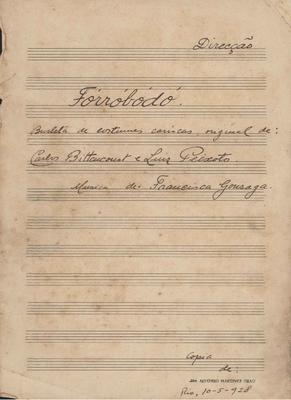 Direcção
Fórróbódó.
Burleta de costumes cariocas, original de:
Carlos Bittencourt e Luiz Peixoto
Musica de: Francisca Gonzaga.
Copia
de:
Rio, 10-5-928